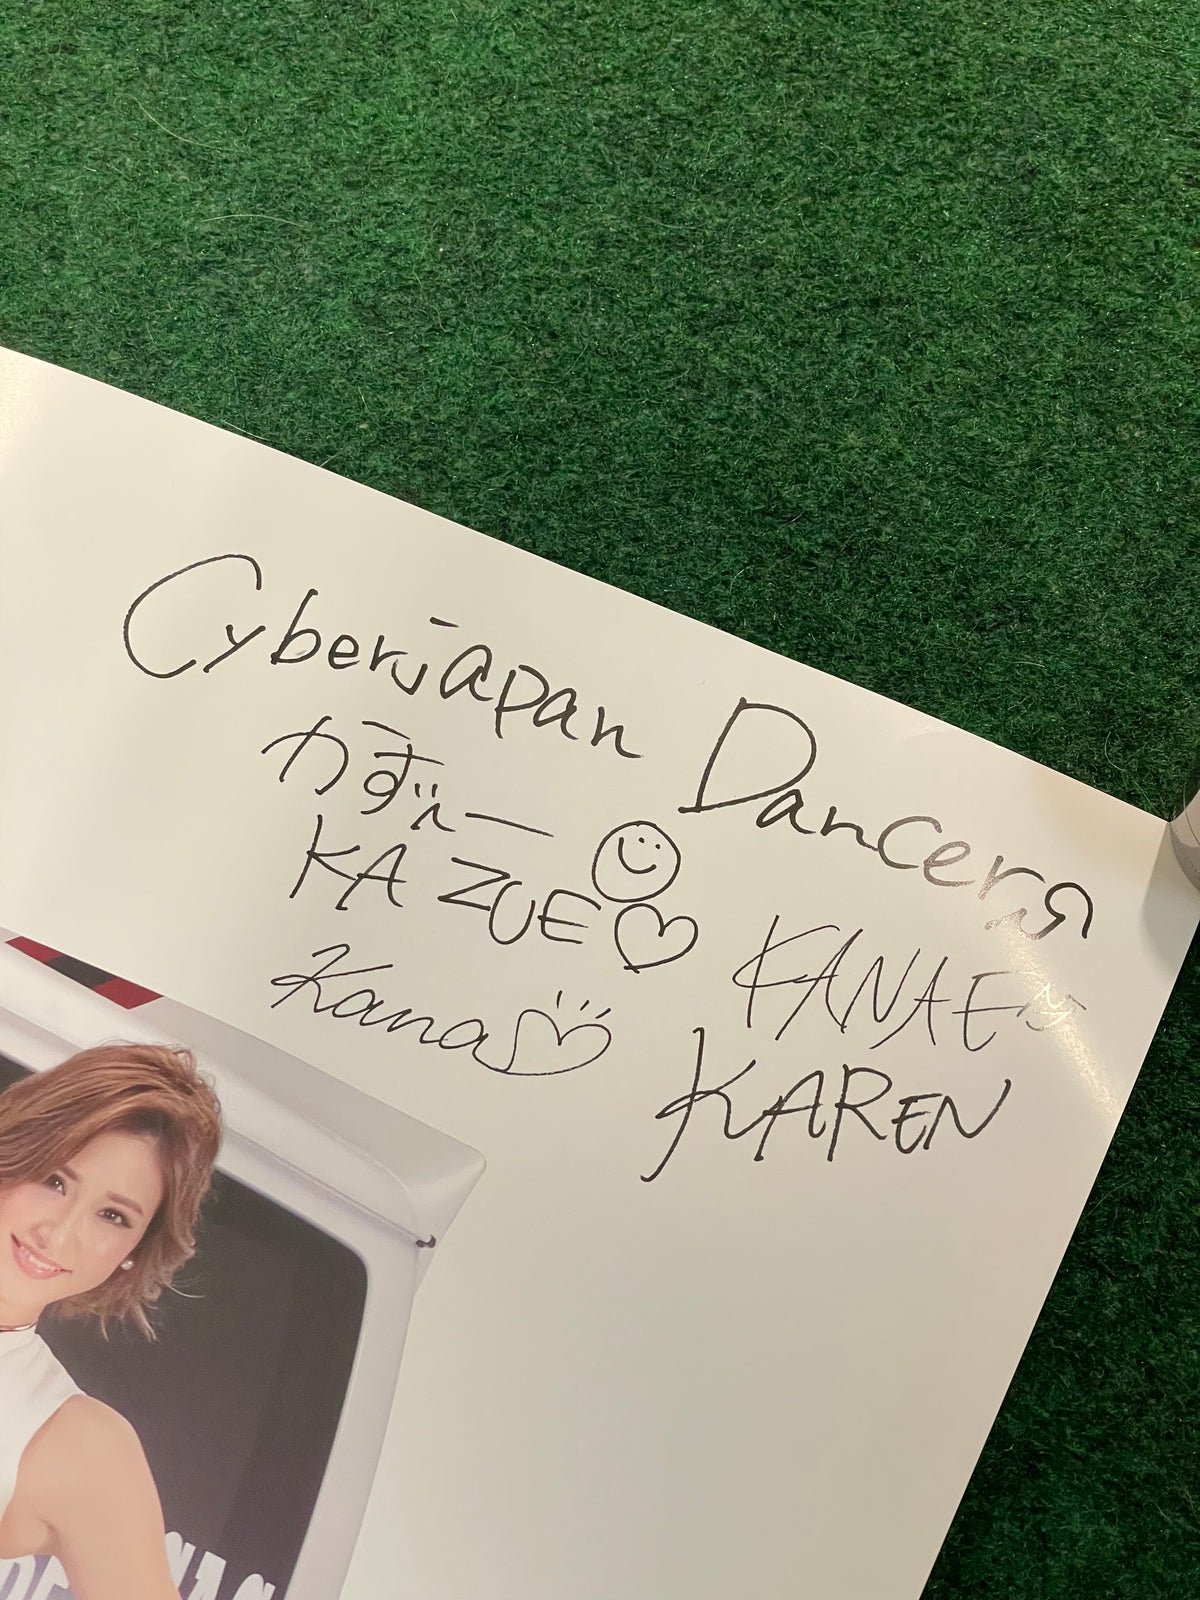 Cyberjapan Dancers
かずえー
KAZUE
KANAE
Kana
KAREN